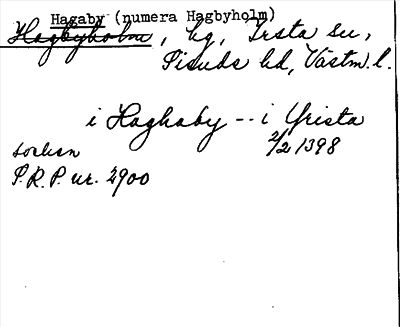 Hagaby (numera Hagbyholm)
Hagbyholm, hg, Irsta sn,
Siende hd, Västm. l.
i Haghaby -- i Yrista
socken 2/2 1398
S.R.P. nr. 2900